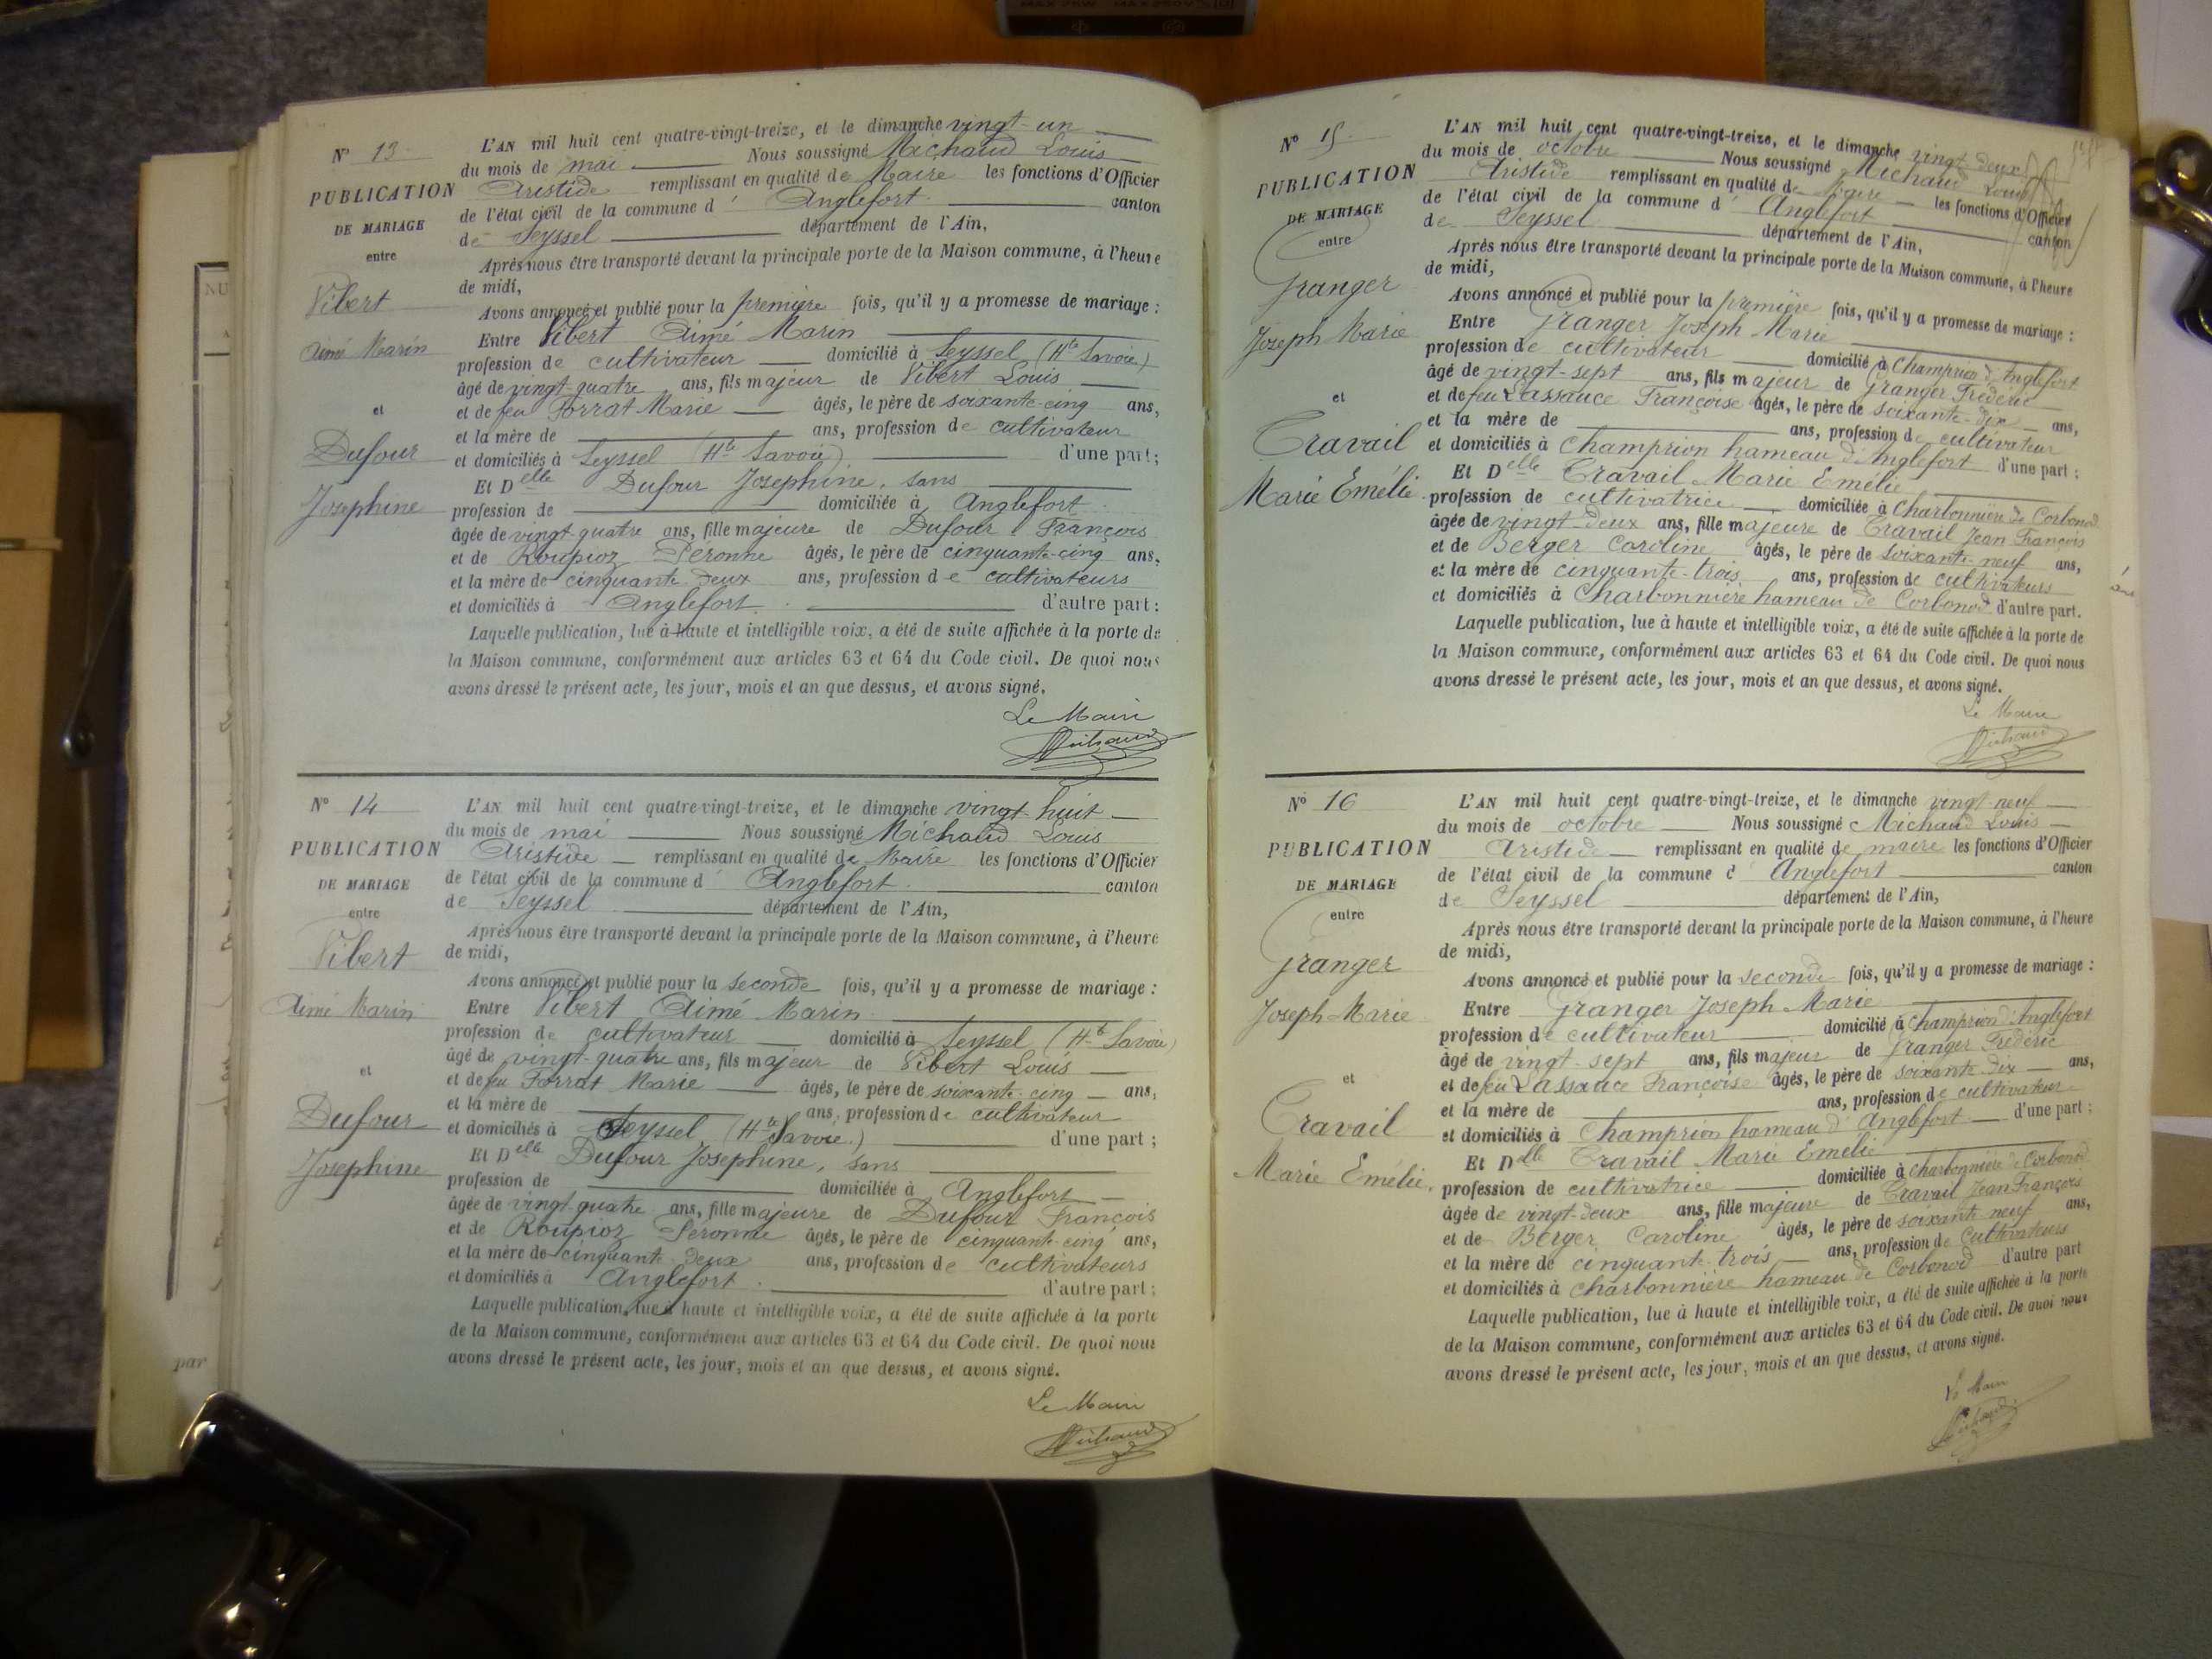 N° 13
PUBLICATION
DE MARIAGE
entre
Vibert
Aimé Marin
et
Dufour
Josephine
L'AN mil huit cent quatre-vingt-treize, et le dimanche vingt-un
du mois de mai Nous soussigné Michaud Louis
Aristide remplissant en qualité de Maire les fonctions d'Officier
de l'état civil de la commune d' Anglefort canton
de Seyssel département de l'Ain,
Après nous être transporté devant la principale porte de la Maison commune, à l'heure
de midi,
Avons annoncé et publié pour la première fois, qu'il y a promesse de mariage :
Entre Vibert Aimé Marin
profession de cultivateur domicilié à Seyssel (Hte Savoie)
âgé de vingt-quatre ans, fils majeur de Vibert Louis
et de feu Forrat Marie âgés, le père de soixante-cinq ans,
et la mère de ans, profession de cultivateur
et domiciliés à Seyssel (Hte Savoie) d'une part;
Et Delle Dufour Josephine, sans
profession de domiciliée à Anglefort
âgée de vingt quatre ans, fille majeure de Dufour François
et de Roupioz Péronne âgés, le père de cinquante-cinq ans,
et la mère de cinquante deux ans, profession de cultivateurs
et domiciliés à Anglefort d'autre part :
Laquelle publication, lue à haute et intelligible voix, a été de suite affichée à la porte de
la Maison commune, conformément aux articles 63 et 64 du Code civil. De quoi nous
avons dressé le présent acte, les jour, mois et an que dessus, et avons signé.
Le Maire
Michaud
N° 14
PUBLICATION
DE MARIAGE
entre
Vibert
Aimé Marin
et
Dufour
Josephine
L'AN mil huit cent quatre-vingt-treize, et le dimanche vingt-huit
du mois de mai Nous soussigné Michaud Louis
Aristide remplissant en qualité de Maire les fonctions d'Officier
de l'état civil de la commune d' Anglefort canton
de Seyssel département de l'Ain,
Après nous être transporté devant la principale porte de la Maison commune, à l'heure
de midi,
Avons annoncé et publié pour la seconde fois, qu'il y a promesse de mariage :
Entre Vibert Aimé Marin
profession de cultivateur domicilié à Seyssel (Hte Savoie)
âgé de vingt-quatre ans, fils majeur de Vibert Louis
et de feu Forrat Marie âgés, le père de soixante-cinq ans,
et la mère de ans, profession de cultivateur
et domiciliés à Seyssel (Hte Savoie) d'une part ;
Et Delle Dufour Josephine, sans
profession de domiciliée à Anglefort
âgée de vingt quatre ans, fille majeure de Dufour François
et de Roupioz Péronne âgés, le père de cinquante-cinq ans,
et la mère de cinquante deux ans, profession de cultivateurs
et domiciliés à Anglefort d'autre part ;
Laquelle publication, lue à haute et intelligible voix, a été de suite affichée à la porte
de la Maison commune, conformément aux articles 63 et 64 du Code civil. De quoi nous
avons dressé le présent acte, les jour, mois et an que dessus, et avons signé.
Le Maire
Michaud
N° 15
PUBLICATION
DE MARIAGE
entre
Granger
Joseph Marie
et
Travail
Marie Emélie
L'AN mil huit cent quatre-vingt-treize, et le dimanche vingt-deux
du mois de octobre Nous soussigné Michaud Louis
Aristide remplissant en qualité de Maire les fonctions d'Officier
de l'état civil de la commune d' Anglefort canton
de Seyssel département de l'Ain,
Après nous être transporté devant la principale porte de la Maison commune, à l'heure
de midi,
Avons annoncé et publié pour la première fois, qu'il y a promesse de mariage :
Entre Granger Joseph Marie
profession de cultivateur domicilié à Champrion d'Anglefort
âgé de vingt-sept ans, fils majeur de Granger Frédéric
et de feu Lassauce Françoise âgés, le père de soixante-dix ans,
et la mère de ans, profession de cultivateur
et domiciliés à Champrion hameau d'Anglefort d'une part ;
Et Delle Travail Marie Emélie
profession de cultivatrice domiciliée à Charbonnière de Corbonod
âgée de vingt-deux ans, fille majeure de Travail Jean François
et de Berger Caroline âgés, le père de soixante-neuf ans,
et la mère de cinquante-trois ans, profession de cultivateurs
et domiciliés à Charbonnière hameau de Corbonod d'autre part.
Laquelle publication, lue à haute et intelligible voix, a été de suite affichée à la porte de
la Maison commune, conformément aux articles 63 et 64 du Code civil. De quoi nous
avons dressé le présent acte, les jour, mois et an que dessus, et avons signé.
Le Maire
Michaud
N° 16
PUBLICATION
DE MARIAGE
entre
Granger
Joseph Marie
et
Travail
Marie Emélie
L'AN mil huit cent quatre-vingt-treize, et le dimanche vingt-neuf
du mois de octobre Nous soussigné Michaud Louis
Aristide remplissant en qualité de maire les fonctions d'Officier
de l'état civil de la commune d' Anglefort canton
de Seyssel département de l'Ain,
Après nous être transporté devant la principale porte de la Maison commune, à l'heure
de midi,
Avons annoncé et publié pour la seconde fois, qu'il y a promesse de mariage :
Entre Granger Joseph Marie
profession de cultivateur domicilié à Champrion d'Anglefort
âgé de vingt-sept ans, fils majeur de Granger Frédéric
et de feu Lassauce Françoise âgés, le père de soixante-dix ans,
et la mère de ans, profession de cultivateur
et domiciliés à Champrion hameau d'Anglefort d'une part ;
Et Delle Travail Marie Emélie
profession de cultivatrice domiciliée à Charbonnière de Corbonod
âgée de vingt-deux ans, fille majeure de Travail Jean François
et de Berger Caroline âgés, le père de soixante-neuf ans,
et la mère de cinquante-trois ans, profession de cultivateurs
et domiciliés à Charbonnière hameau de Corbonod d'autre part
Laquelle publication, lue à haute et intelligible voix, a été de suite affichée à la porte
de la Maison commune, conformément aux articles 63 et 64 du Code civil. De quoi nous
avons dressé le présent acte, les jour, mois et an que dessus, et avons signé.
Le Maire
Michaud
NU
par